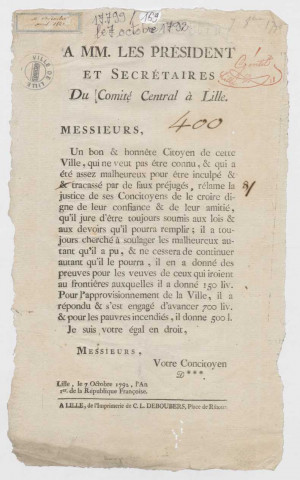 17799/169
le 7 octobre 1792
VILLE DE LILLE
A MM. LES PRÉSIDENT
ET SECRÉTAIRES
Du Comité Central à Lille.
400
MESSIEURS,
Un bon & honnête Citoyen de cette
Ville, qui ne veut pas être connu, & qui a
été assez malheureux pour être inculpé &
& tracassé par de faux préjugés, réclame la
justice de ses Concitoyens de le croire di-
gne de leur confiance & de leur amitié,
qu'il jure d'être toujours soumis aux lois &
aux devoirs qu'il pourra remplir; il a tou-
jours cherché à soulager les malheureux au-
tant qu'il a pu, & ne cessera de continuer
autant qu'il le pourra, il en a donné des
preuves pour les veuves de ceux qui iroient
au frontières auxquelles il a donné 150 liv.
Pour l'approvisionnement de la Ville, il a
répondu & s'est engagé d'avancer 700 liv.
& pour les pauvres incendiés, il donne 500 l.
Je suis votre égal en droit,
MESSIEURS,
Votre Concitoyen
D***
Lille, le 7 Octobre 1792, l'An
1er. de la République Françoise.
A LILLE, de l'Imprimerie de C. L. DEBOUBERS, Place de Rihour.